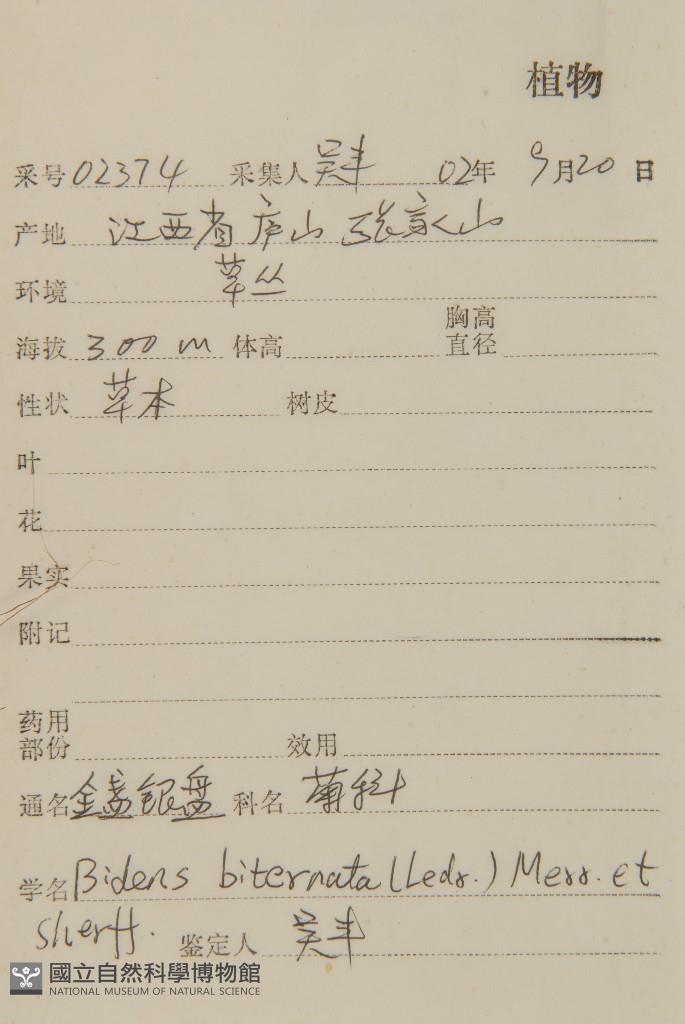 植物
采号 02374 采集人 吴丰 02年 9月20日
产地 江西省庐山 张家山
环境 草丛
海拔 300 m 体高 胸高直径
性状 草本 树皮
叶
花
果实
附记
药用部份 效用
通名 金盏银盘 科名 菊科
学名 Bidens biternata (Lour.) Merr. et
Sherff. 鉴定人 吴丰
國立自然科學博物館
NATIONAL MUSEUM OF NATURAL SCIENCE